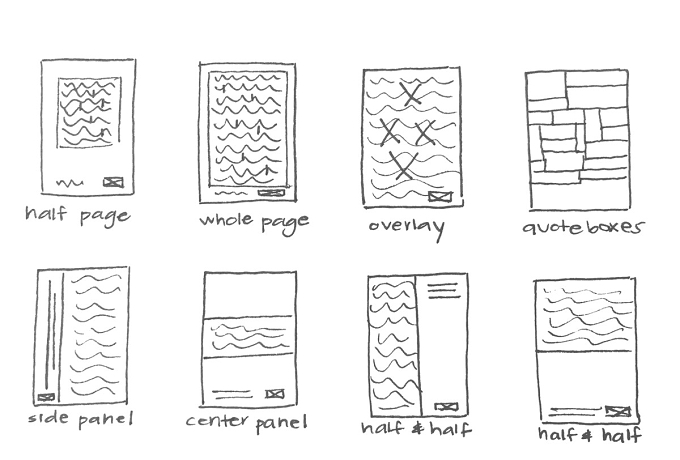 half page
whole page
overlay
quote boxes
side panel
center panel
half & half
half & half